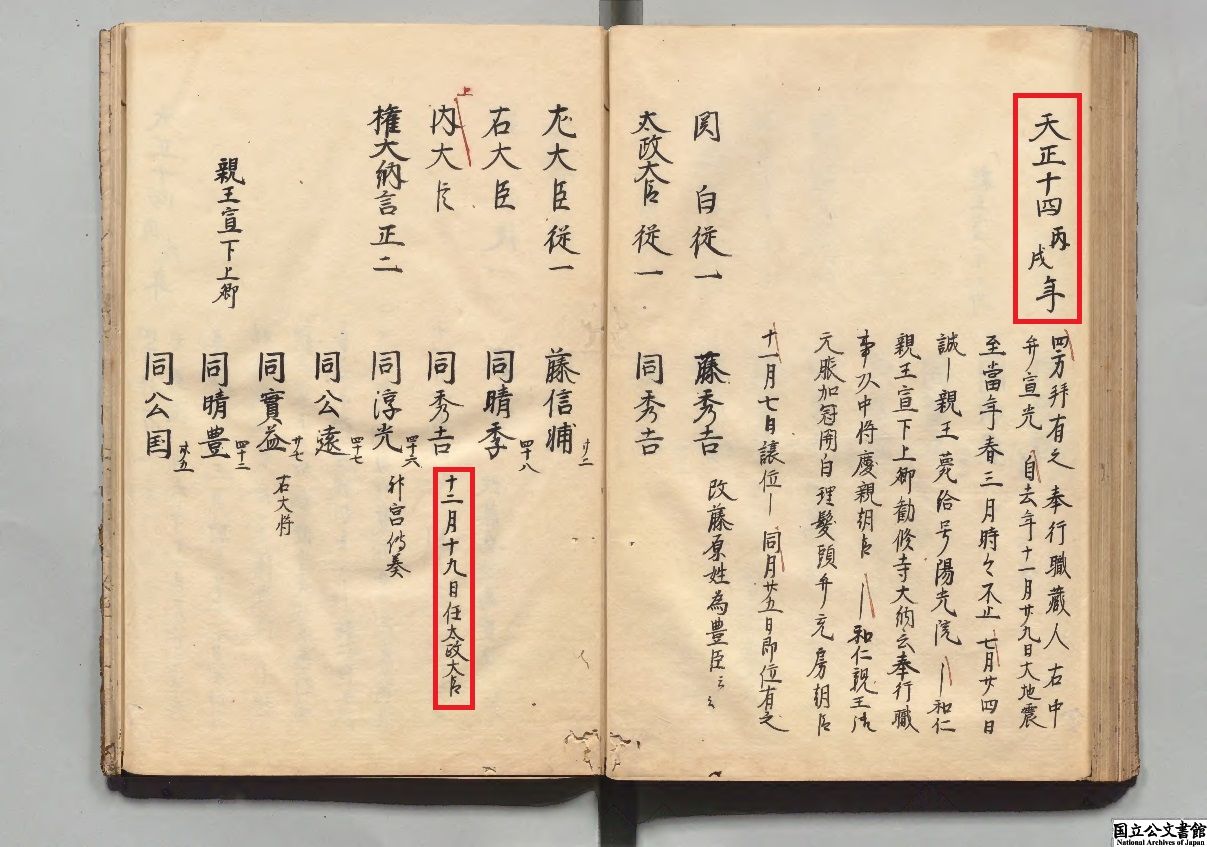 天正十四丙戌年
四方拝有之奉行職蔵人右中
弁宣光 自去年十一月廿九日大地震
至當年春三月時々不止 七月廿四日
誠一親王薨給号陽光院 一和仁
親王宣下上卿勧修寺大納言奉行職
事以中将慶親朝臣 一和仁親王御
元服加冠関白理髪頭弁充房朝臣
十一月七日譲位一同月廿五日即位有之
関 白従一 藤秀吉 改藤原姓為豊臣云々
太政大臣 従一 同秀吉
左大臣 従一 藤信輔 廿二
右大臣 同晴季 四十八
上
内大臣 同秀吉 十二月十九日任太政大臣
権大納言正二 同淳光 四十六 神宮傳奏
同公遠 四十七
同實益 廿七 右大将
親王宣下上卿 同晴豊 四十三
同公国 卅五
国立公文書館
National Archives of Japan